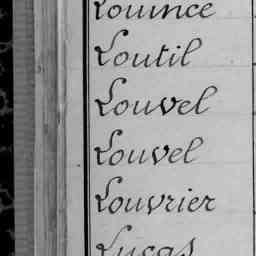 Louince
Loutil
Louvel
Louvel
Louvrier
Lucas